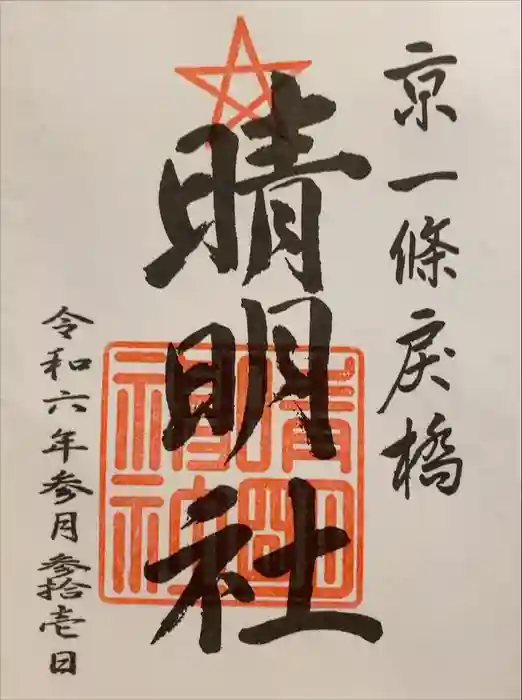 京一條戻橋
晴明社
晴明
福神
令和六年参月参拾壱日